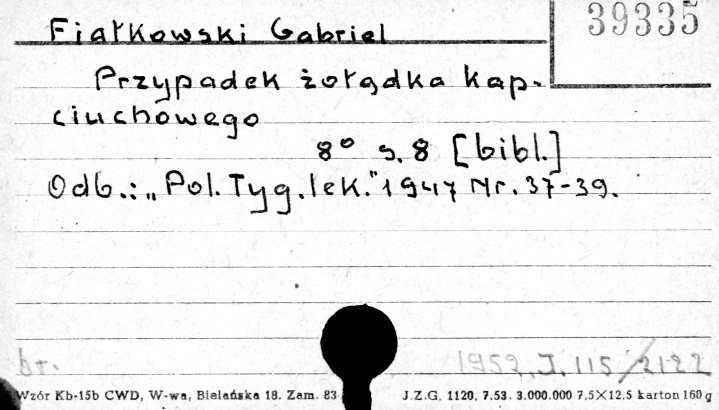 39335
Fiałkowski Gabriel
Przypadek żołądka kap-
ciuchowego
8° s. 8 [bibl.]
Odb.: „Pol. Tyg. lek." 1947 Nr. 37-39.
br. 1952. J. 115/2122
Wzór Kb-15b CWD, W-wa, Bielańska 18. Zam. 83 J.Z.G. 1120. 7.53. 3.000.000 7,5×12,5 karton 160 g